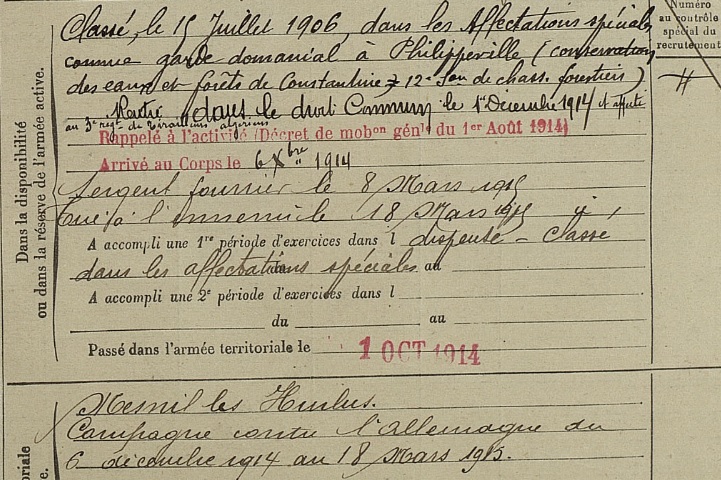 Numéro
au contrôle
spécial du
recrutement
Dans la disponibilité
ou dans la réserve de l'armée active.
Classé, le 15 Juillet 1906, dans les Affectations spéciales
comme garde domanial à Philippeville (conservation
des eaux et forêts de Constantine 12e de chass. forestiers)
dans le droit Commun le 1er Décembre 1914 et affecté
au 3e régt de Tirailleurs algériens
Rappelé à l'activité (Décret de mobon génle du 1er Août 1914)
Arrivé au Corps le 6 Xbre 1914
Sergent fourrier le 8 Mars 1915
Tué à l'ennemi le 18 Mars 1915 à
A accompli une 1re période d'exercices dans l dispensé - Classé
dans les affectations spéciales au
A accompli une 2e période d'exercices dans l
du au
Passé dans l'armée territoriale le 1 OCT 1914
Mesnil les Hurlus.
Campagne contre l'Allemagne du
6 décembre 1914 au 18 Mars 1915.